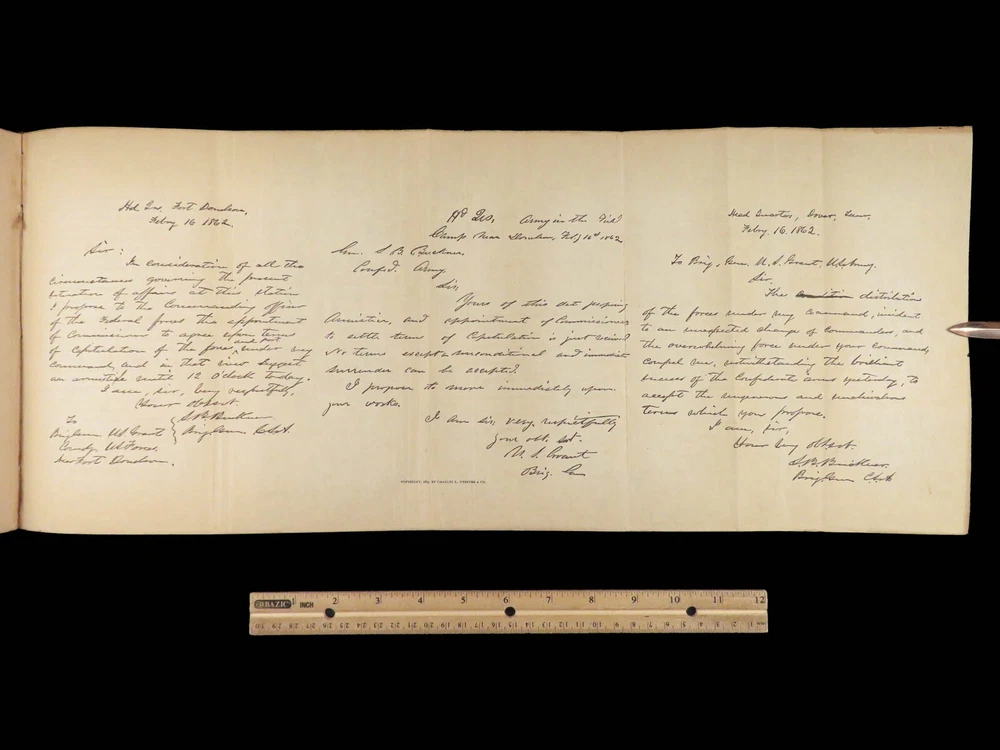 Hd Qrs. Fort Donelson,
Feby 16 1862.
Sir:
In consideration of all the
circumstances governing the present
situation of affairs at this station
I propose to the Commanding officer
of the Federal forces the appointment
of Commissioners to agree upon terms
of capitulation of the forces and post under my
command, and in that view suggest
an armistice until 12 O'clock today.
I am, sir, very respectfully,
Your obt. svt.
S. B. Buckner
Brig. Gen. C.S.A.
To
Brig Genl U.S. Grant
Comdg. US Forces
Near Fort Donelson.
Hd Qrs, Army in the Field
Camp Near Donelson, Feby 16th 1862
Gen. S. B. Buckner,
Confed. Army,
Sir,
Yours of this date proposing
Armistice, and appointment of Commissioners
to settle terms of Capitulation is just received.
No terms except unconditional and immediate
surrender can be accepted.
I propose to move immediately upon
your works.
I am Sir, very respectfully
your obt. svt.
U. S. Grant
Brig. Gen
COPYRIGHT, BY CHARLES L. WEBSTER & CO.
Head Quarters, Dover, Tenn.
Feby. 16. 1862.
To Brig. Gen. U. S. Grant, U.S. Army.
Sir.
The distribution
of the forces under my command, incident
to an unexpected change of commanders, and
the overwhelming force under your command,
compel me, notwithstanding the brilliant
success of the Confederate arms yesterday, to
accept the ungenerous and unchivalrous
terms which you propose.
I am, sir,
Your very obt. svt.
S. B. Buckner.
Brig. Gen. C.S.A.
BAZIC
INCH
1 2 3 4 5 6 7 8 9 10 11 12